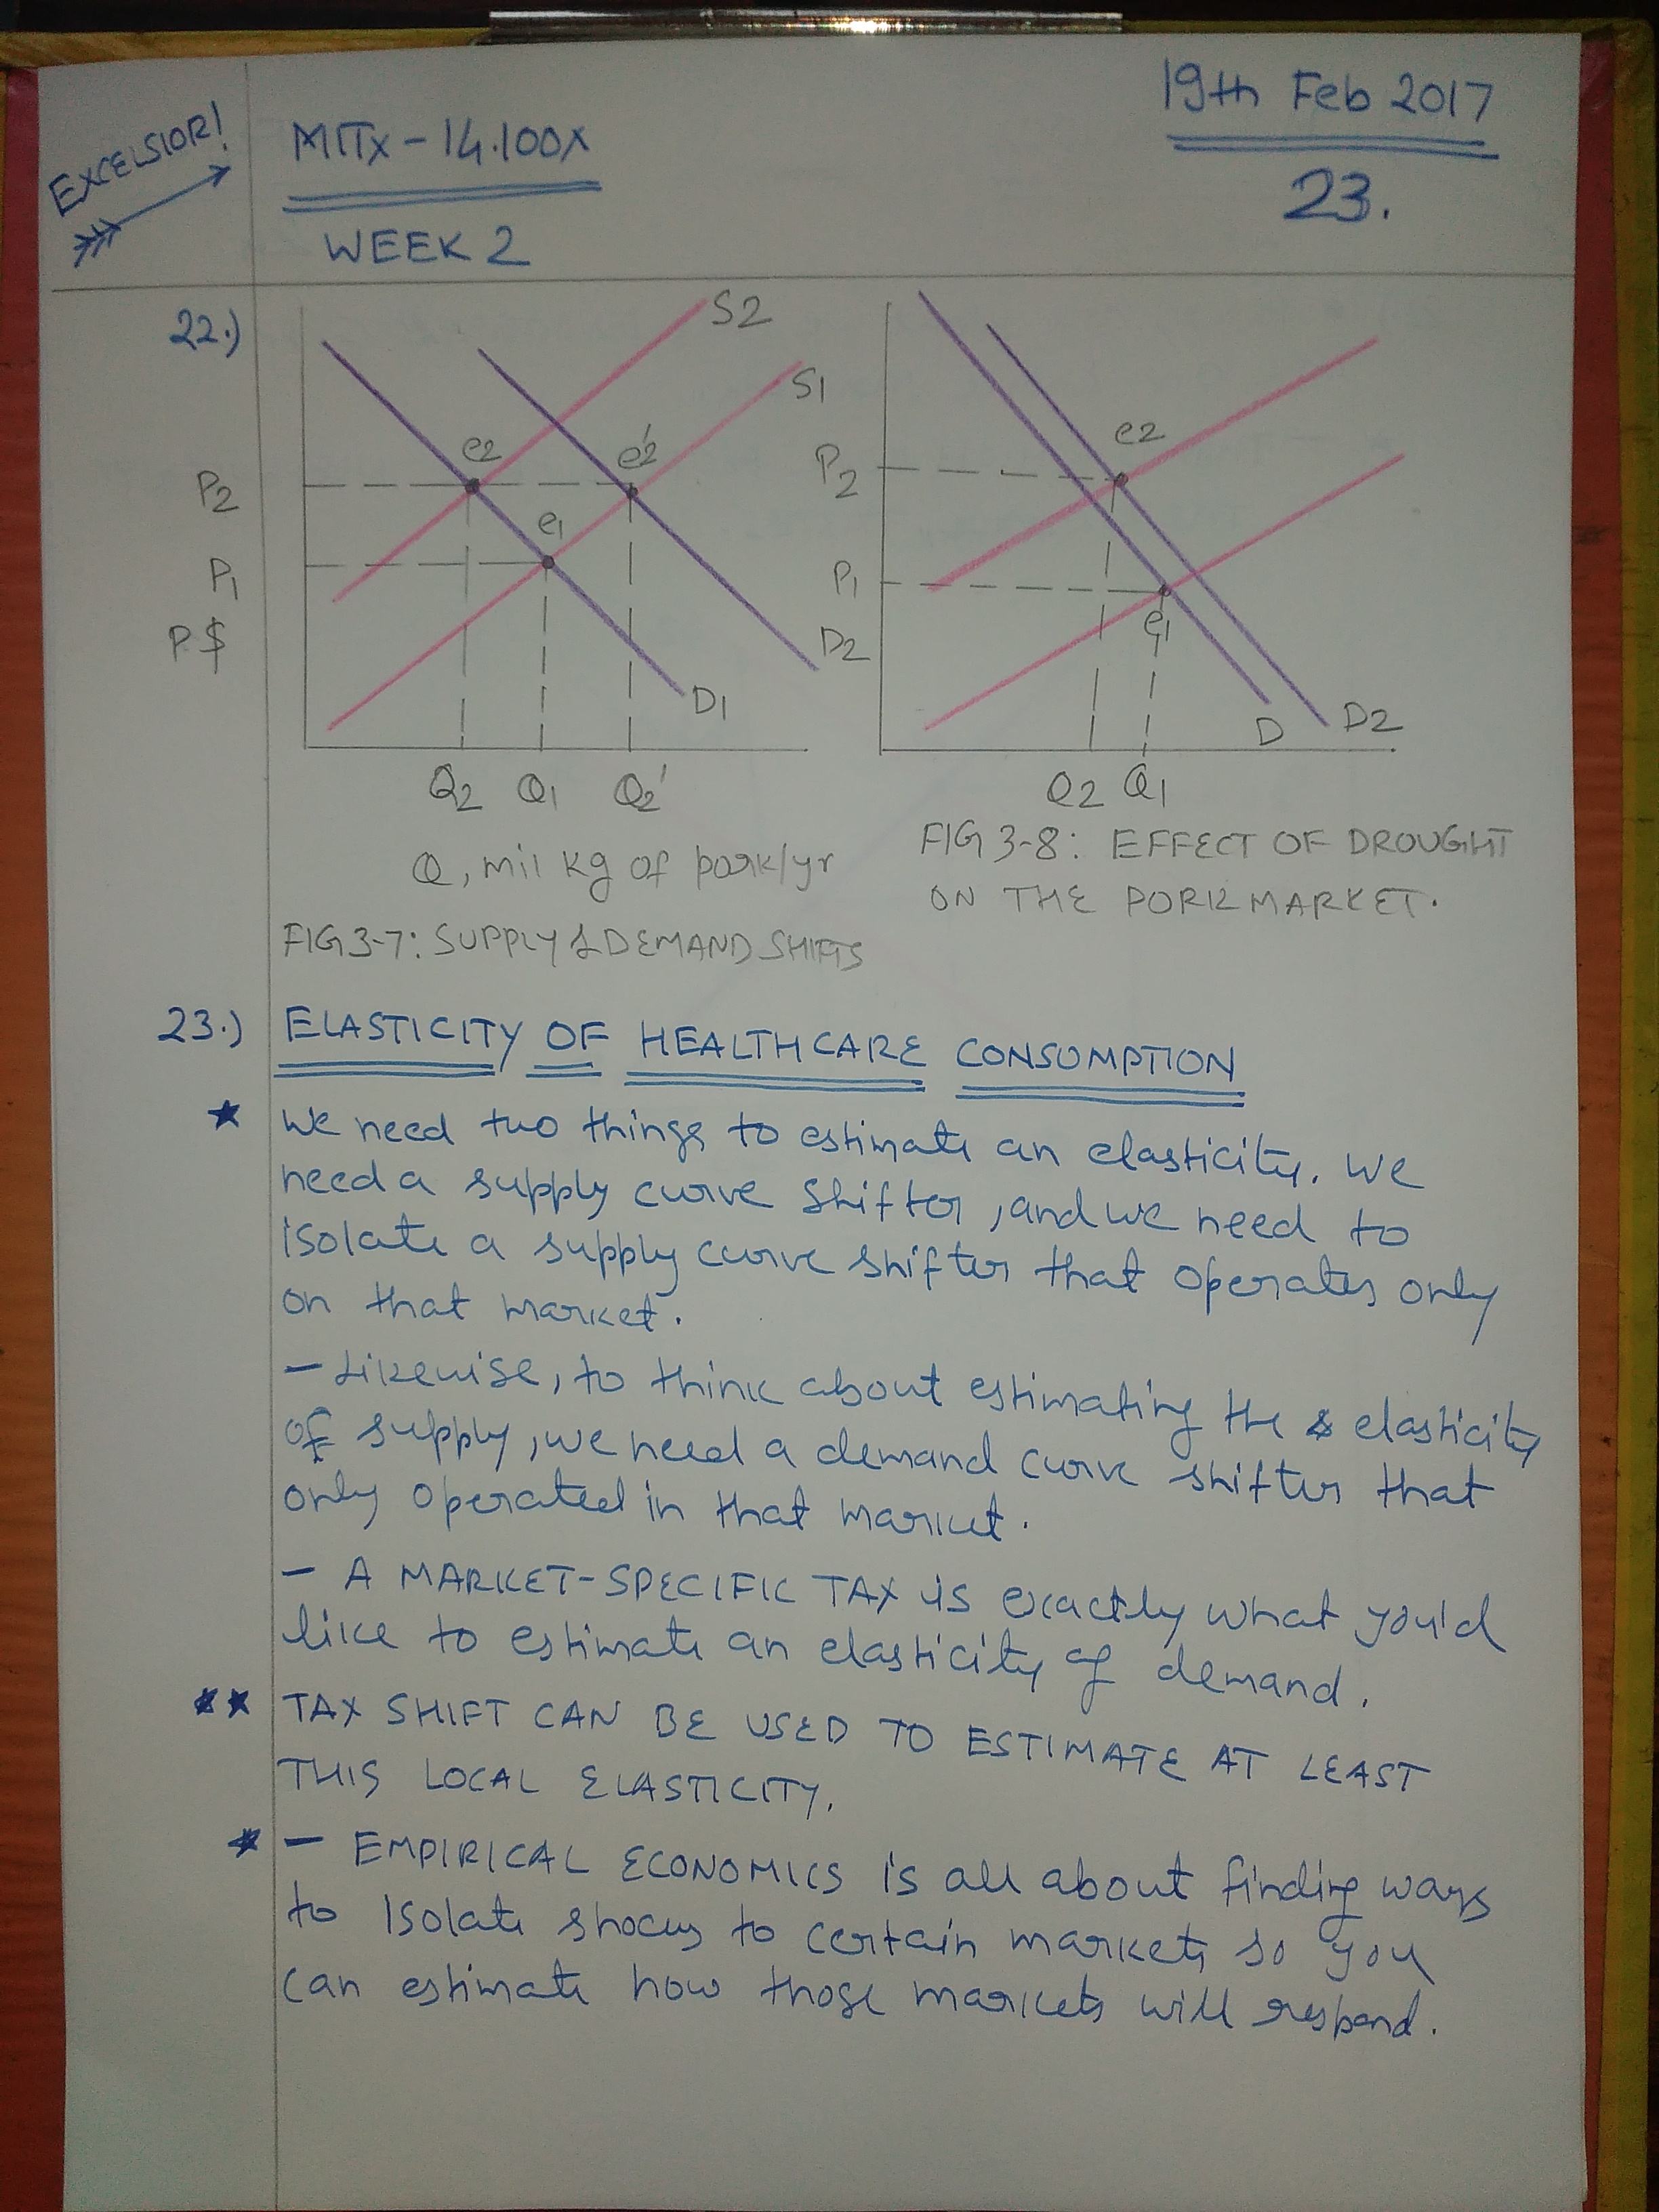 EXCELSIOR!
MITx - 14.100x
WEEK 2
19th Feb 2017
23.
22.)
S2
S1
e2
e2'
e1
P2
P1
P $
D2
D1
Q2 Q1 Q2'
Q, mil kg of pork/yr
FIG 3-7: SUPPLY & DEMAND SHIFTS
P2
e2
P1
e1
D
D2
Q2 Q1
FIG 3-8: EFFECT OF DROUGHT
ON THE PORK MARKET.
23.) ELASTICITY OF HEALTHCARE CONSUMPTION
★ We need two things to estimate an elasticity. We
need a supply curve shifter, and we need to
isolate a supply curve shifter that operates only
on that market.
- Likewise, to think about estimating the elasticity
of supply, we need a demand curve shifter that
only operated in that market.
- A MARKET-SPECIFIC TAX is exactly what you'd
like to estimate an elasticity of demand.
★★ TAX SHIFT CAN BE USED TO ESTIMATE AT LEAST
THIS LOCAL ELASTICITY.
★ - EMPIRICAL ECONOMICS is all about finding ways
to isolate shocks to certain markets so you
can estimate how those markets will respond.